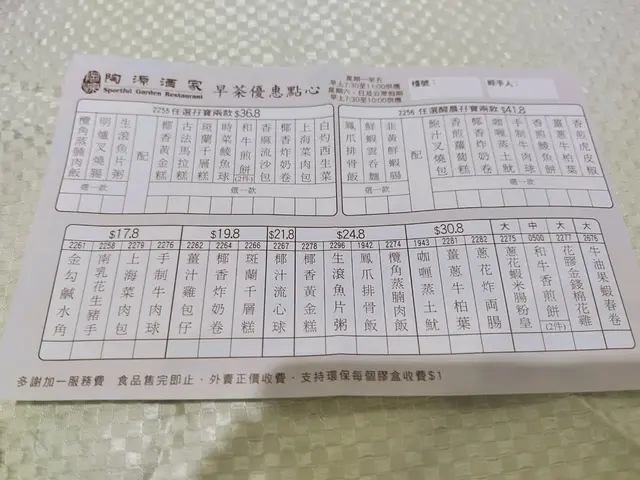 陶源酒家
Sportful Garden Restaurant
早茶優惠點心
星期一至五
早上7:30至11:00供應
星期六、日及公眾假期
早上7:30至10:00供應
檯號：
經手人：
2255 任選孖寶兩款$36.8
欖角蒸腩肉飯
明爐叉燒腸
生滾魚片粥
配
椰香黃金糕
古法馬拉糕
斑蘭千層糕
時菜鯪魚球
和牛煎餅(2件)
香麻流沙包
椰香炸奶卷
上海菜肉包
白灼西生菜
選一款
選一款
2256 任選醒晨孖寶兩款$41.8
鳳爪排骨飯
鮮蝦雲吞麵
韭黃鮮蝦腸
配
鮑汁叉燒包
香煎蘿蔔糕
椰香炸奶卷
咖喱蒸土魷
手制牛肉球
香煎鯪魚餅
薑蔥牛柏葉
香煎虎皮椒
選一款
選一款
$17.8
2261 金勾鹹水角
2258 南乳花生豬手
2279 上海菜肉包
2276 手制牛肉球
$19.8
2262 薑汁雞包仔
2264 椰香炸奶卷
2266 斑蘭千層糕
$21.8
2267 椰汁流心球
$24.8
2278 椰香黃金糕
2296 生滾魚片粥
1942 鳳爪排骨飯
2274 欖角蒸腩肉飯
$30.8
1943 咖喱蒸土魷
2281 薑蔥牛柏葉
2282 蔥花炸兩腸
大 2275 蔥花蝦米腸粉皇
中 0500 和牛香煎餅(2件)
大 2277 花膠金錢棉花雞
大 2676 牛油果蝦春卷
多謝加一服務費 食品售完即止．外賣正價收費．支持環保每個膠盒收費$1